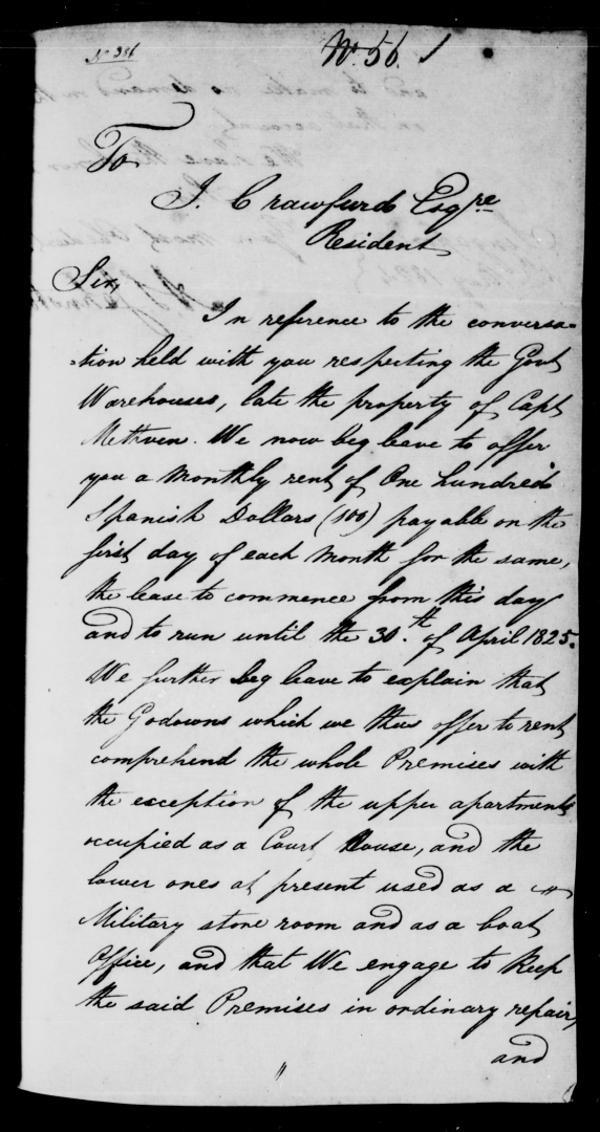 No. 386
No. 56.
To
J. Crawfurd Esqre
Resident
Sir,
In reference to the conversa-
-tion held with you respecting the Govt
Warehouses, late the property of Capt
Methven. We now beg leave to offer
you a monthly rent of One hundred
Spanish Dollars (100) payable on the
first day of each month for the same,
the lease to commence from this day
and to run until the 30.th of April 1825.
We further beg leave to explain that
the Godowns which we thus offer to rent
comprehend the whole Premises with
the exception of the upper apartments
occupied as a Court House, and the
lower ones at present used as a
Military store room and as a boat
Office, and that We engage to keep
the said Premises in ordinary repair,
and